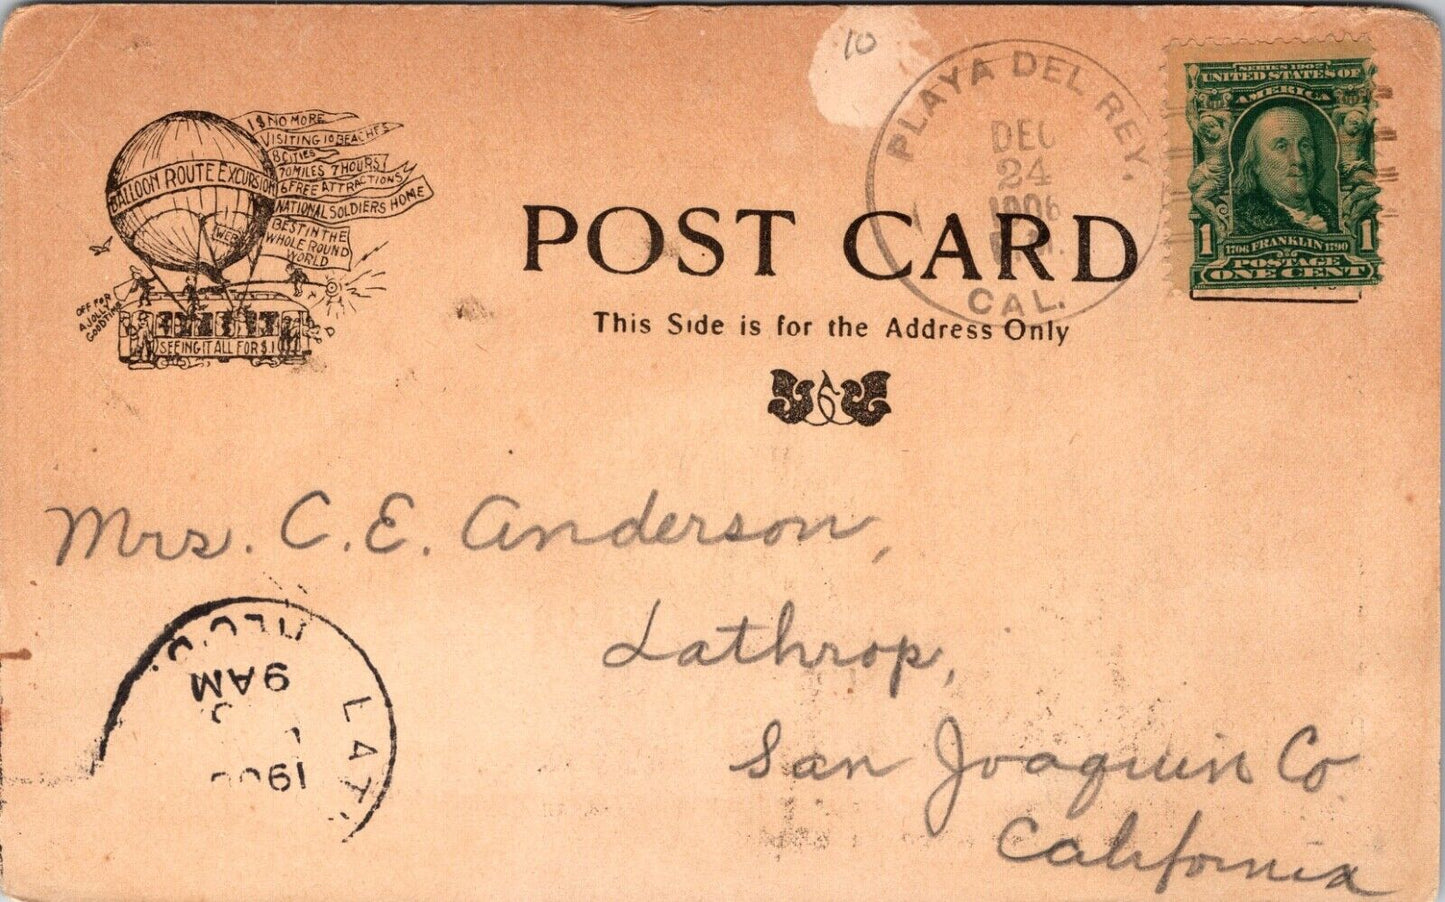 10
BALLOON ROUTE EXCURSION
1$ NO MORE
VISITING 10 BEACHES
8 CITIES
70 MILES 7 HOURS
6 FREE ATTRACTIONS
NATIONAL SOLDIERS HOME
BEST IN THE
WHOLE ROUND
WORLD
OFF FOR
A JOLLY
GOOD TIME
SEEING IT ALL FOR $1
PLAYA DEL REY,
DEC
24
1906
CAL.
SERIES 1902
UNITED STATES OF
AMERICA
1 1
1706 FRANKLIN 1790
POSTAGE
ONE CENT
POST CARD
This Side is for the Address Only
Mrs. C. E. Anderson,
Lathrop,
San Joaquin Co.
California
REC'D.
9 AM
LAT